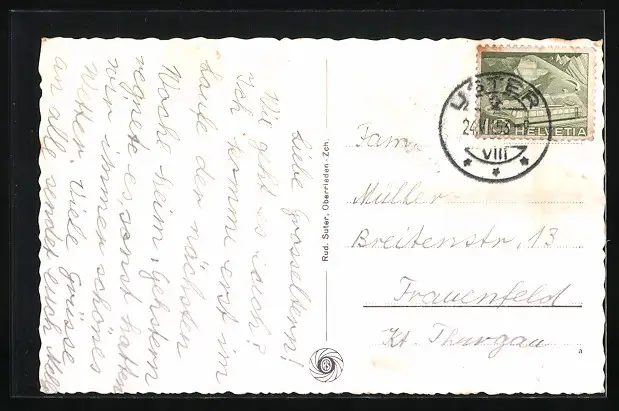 Liebe Grosseltern!
Wie geht es euch?
Ich komme erst im
Laufe der nächsten
Woche heim, gestern
regnete es, sonst hatten
wir immer schönes
Wetter. Viele Grüsse
an alle sendet euch
Rud. Suter, Oberrieden-Zch.
USTER
VIII
HELVETIA
Fam.
Müller
Breitenstr. 13
Frauenfeld
Kt. Thurgau
a